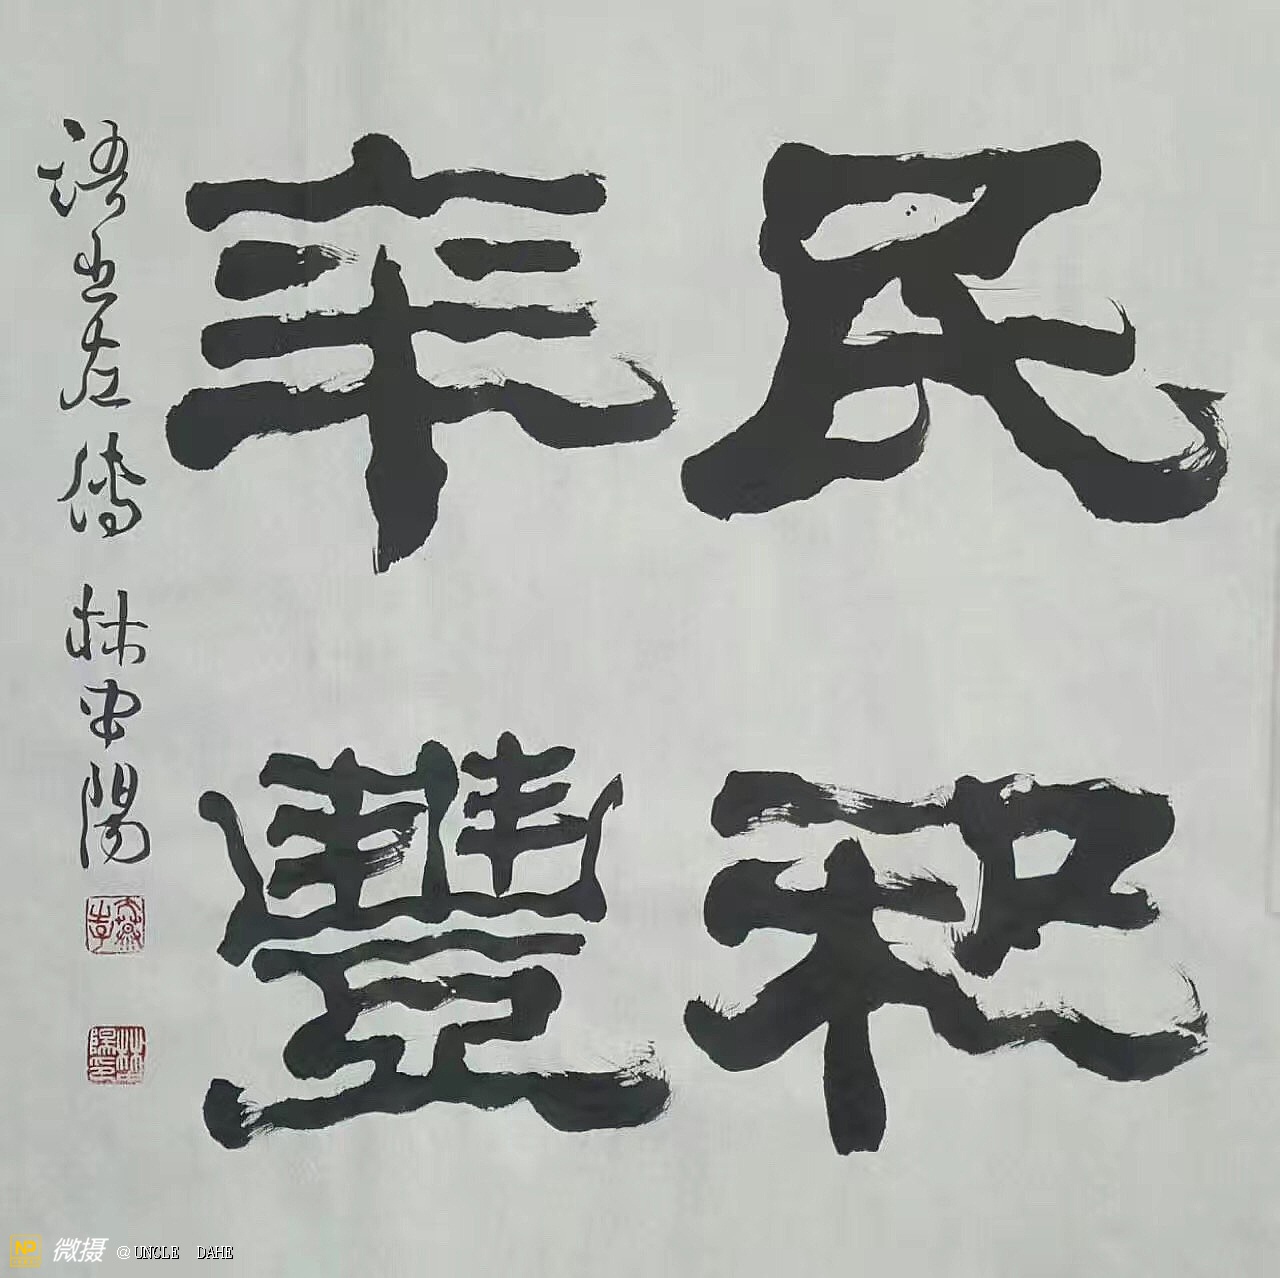 民和
年豐
語出左傳 林中陽
微摄 @UNCLE DAHE